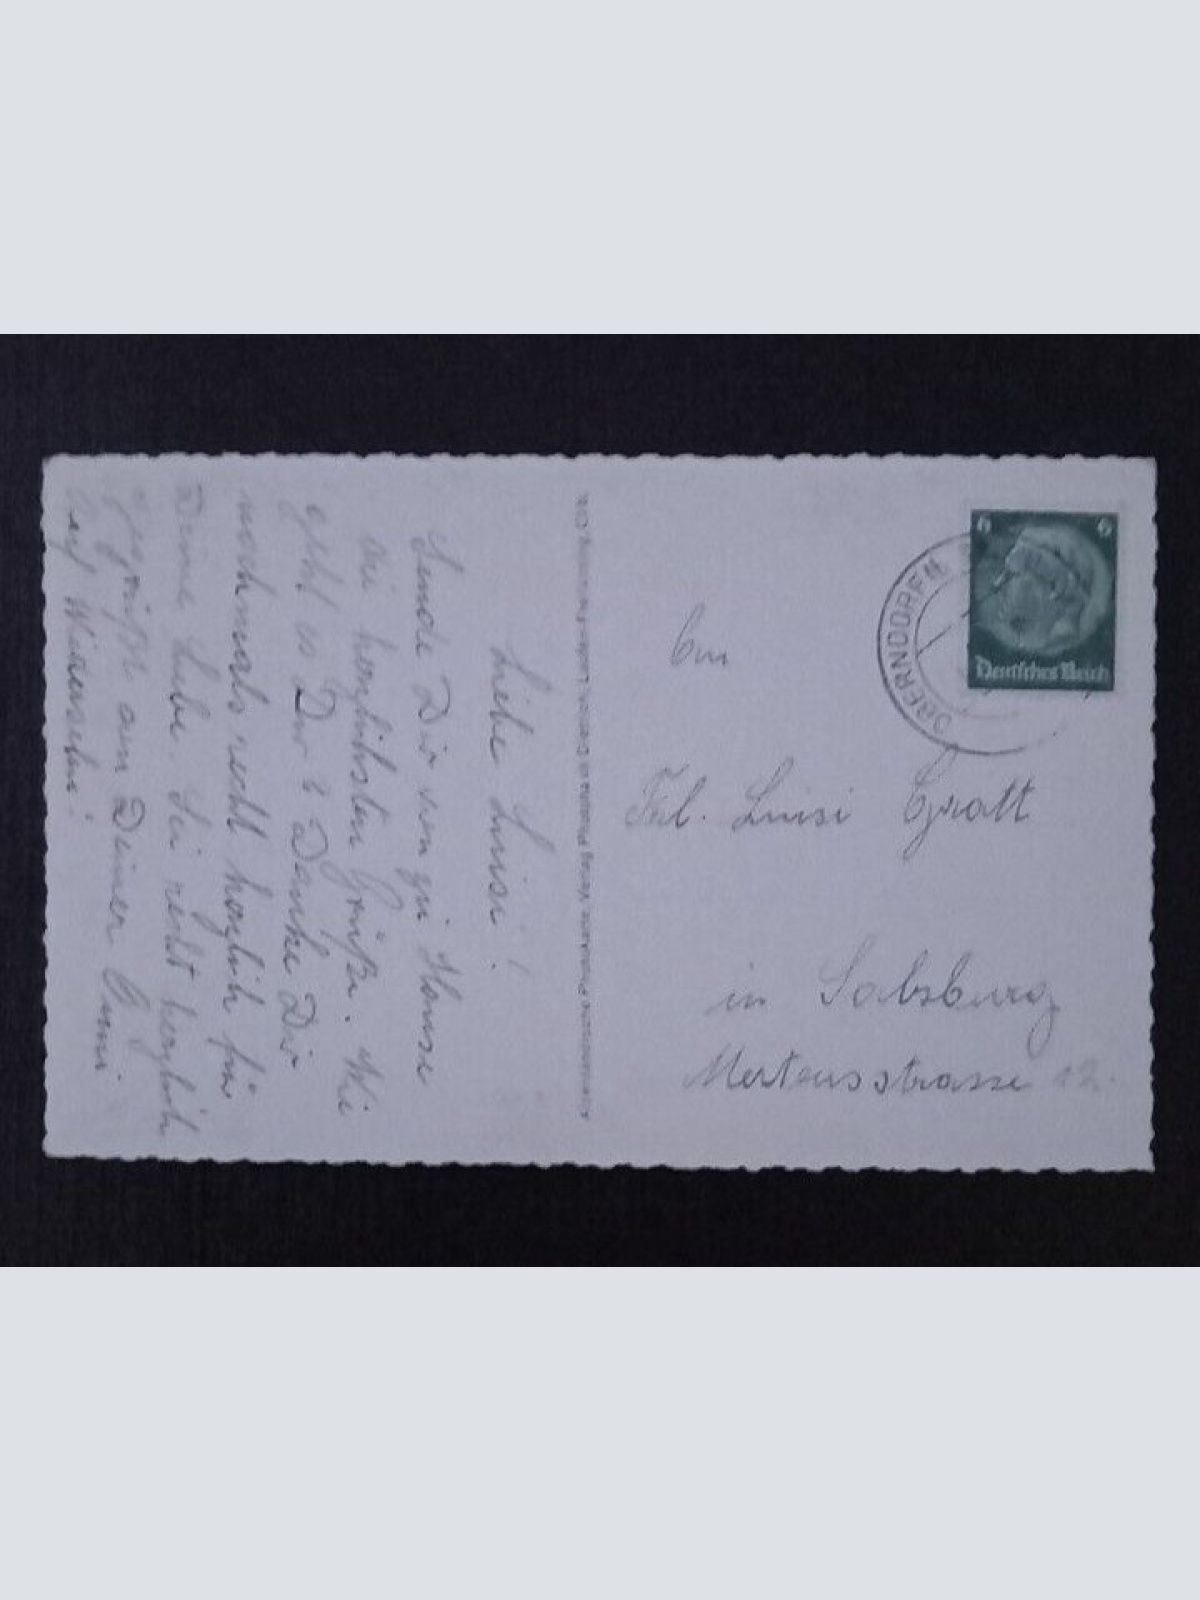 Liebe Luisi!
Sende Dir von zu Hause
die herzlichsten Grüße. Wie
geht es Dir? Danke Dir
nochmals recht herzlich für
Deine Liebe. Sei recht herzlich
gegrüßt von Deiner
Auf Wiedersehn!
An
Frl. Luisi Gratt
in Salzburg
Mertensstrasse 12.
6 6
Deutsches Reich
OBERNDORF